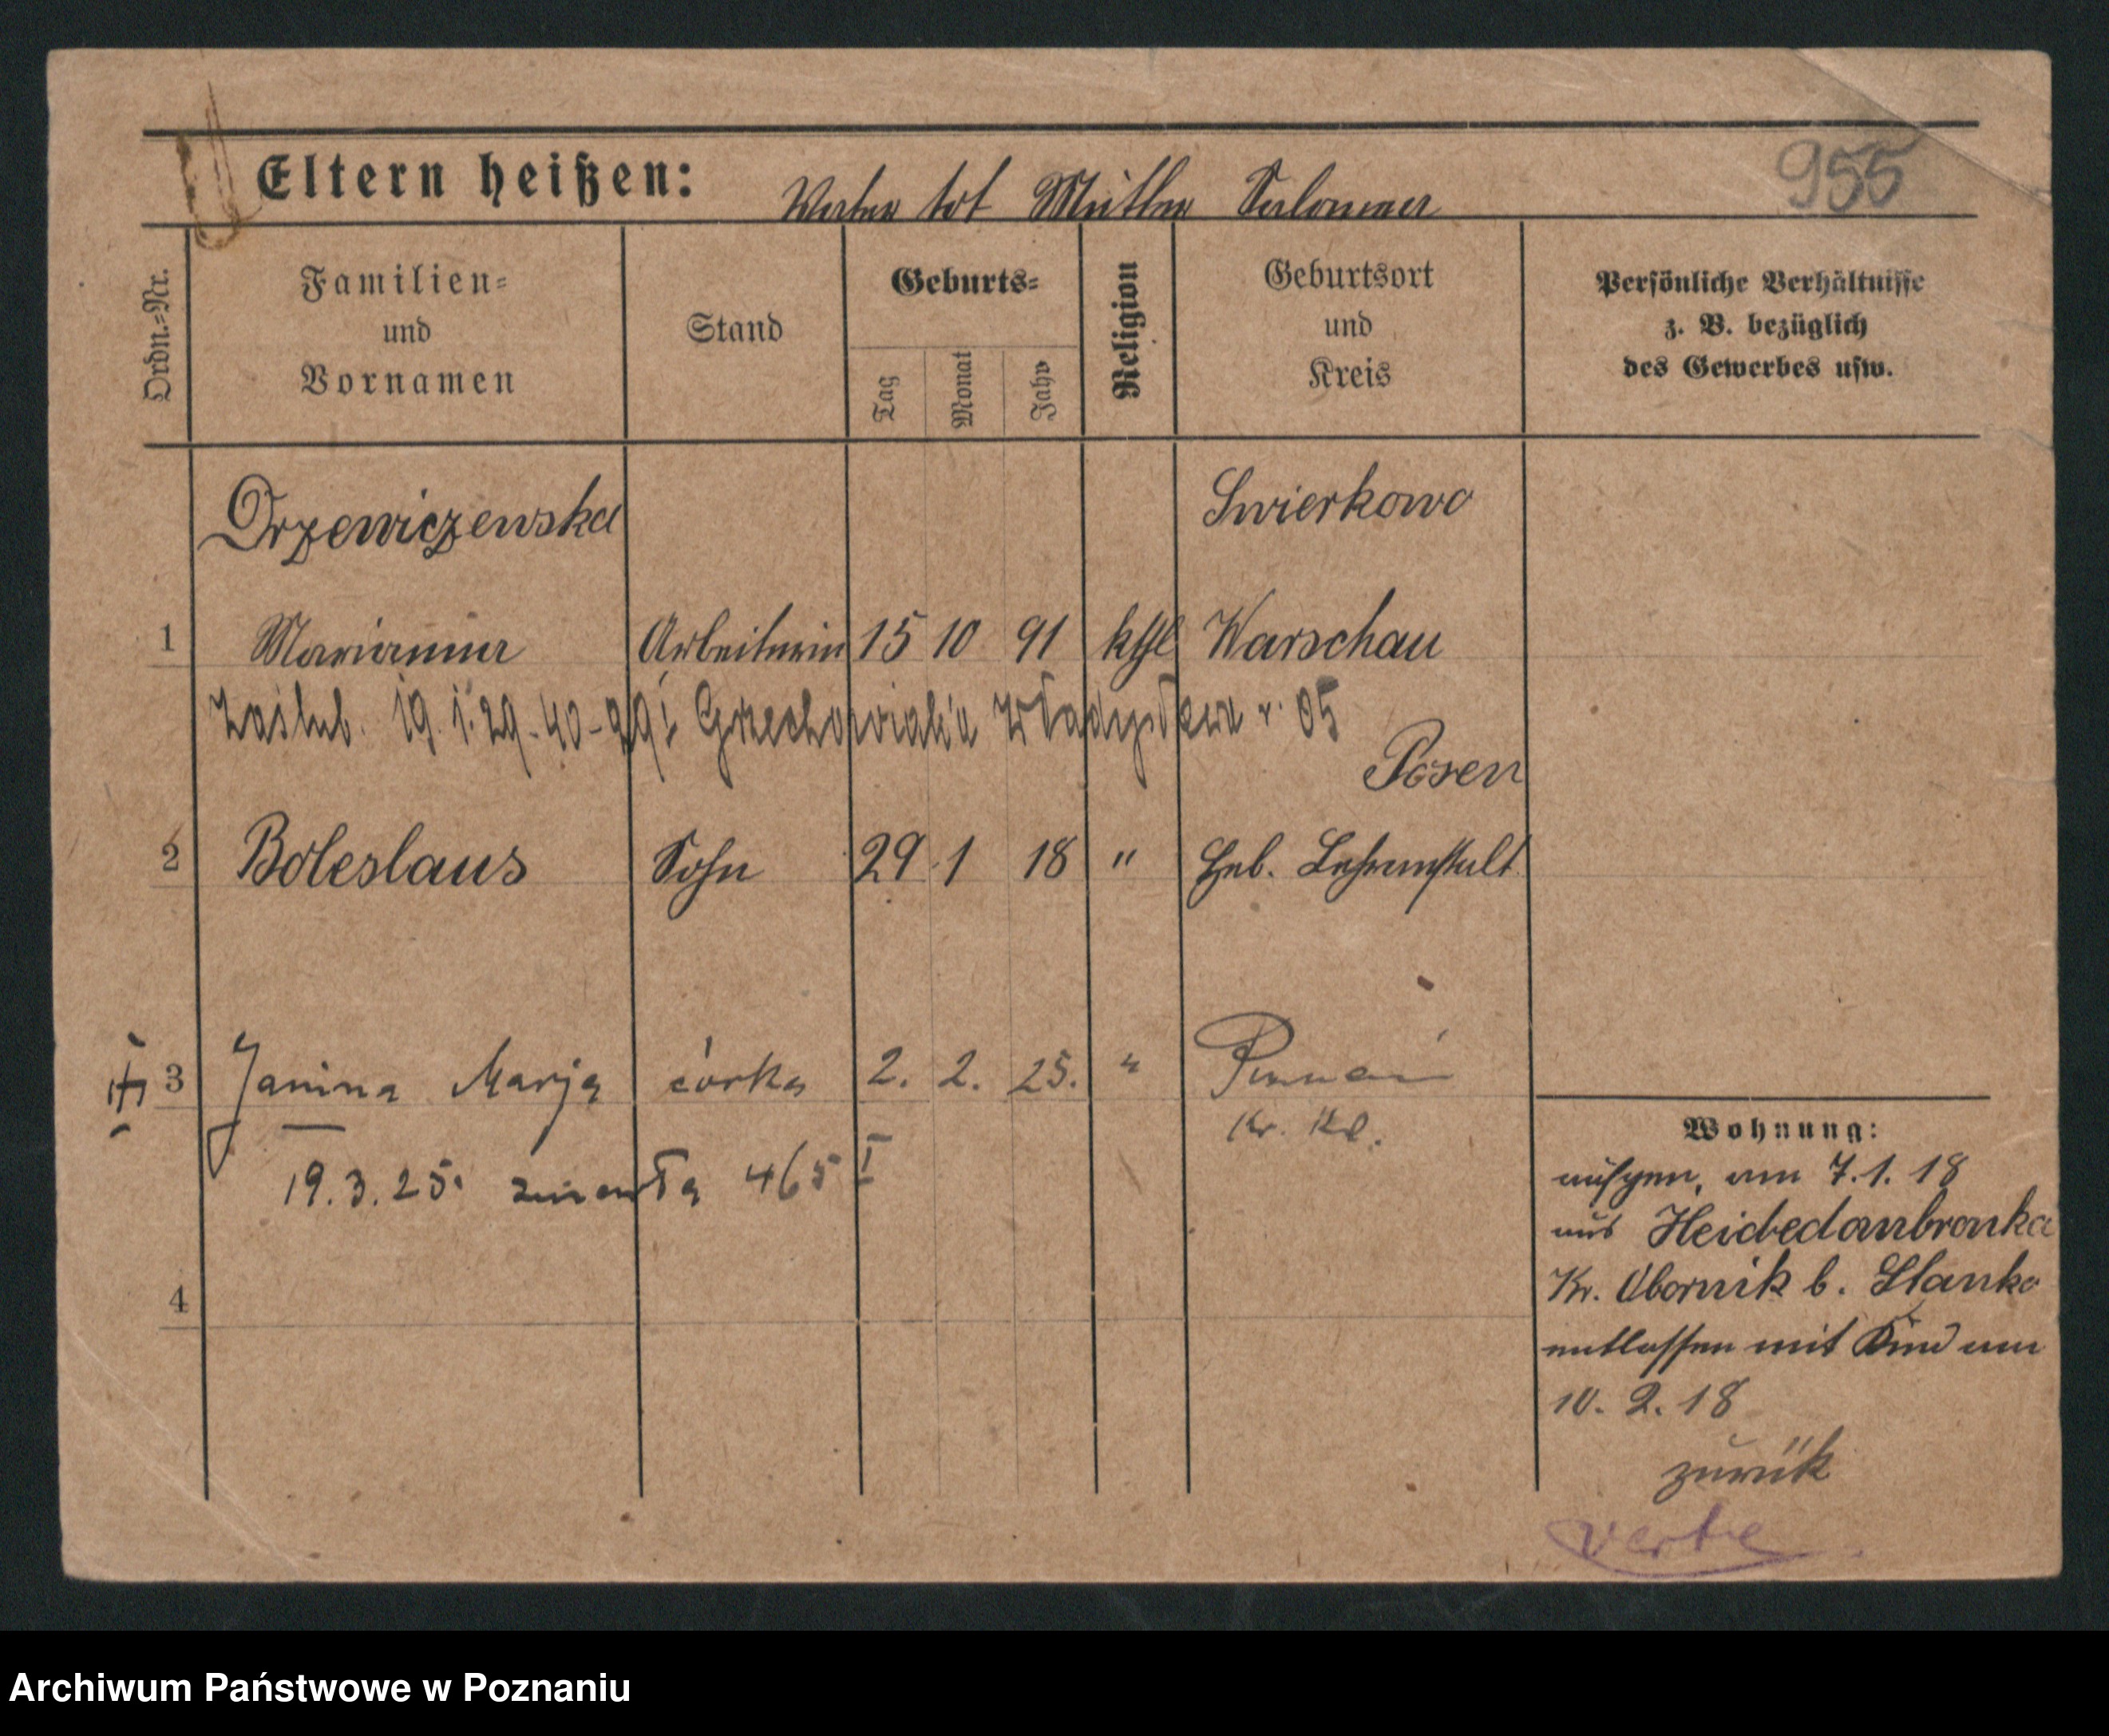 Eltern heißen: Vater tot Mutter Salomea 955
Ordn.=Nr.
Familien=
und
Vornamen
Stand
Geburts=
Tag
Monat
Jahr
Religion
Geburtsort
und
Kreis
Persönliche Verhältnisse
z. B. bezüglich
des Gewerbes usw.
Drzewiczewska Swierkowo
1 Marianna Arbeiterin 15 10 91 kthl Warschau
Zaślub. 19. 1. 29 - 40 - Grzechowiak'a Władysława r. 05
Posen
2 Boleslaus Sohn 29 1 18 " Heb. Lehranstalt
3 Janina Marja córka 2. 2. 25. " Poznań
Kr. Kl.
19.3.25. zmarła 465 I
4
Wohnung:
aufgen. am 7.1.18
aus Heidedombronka
Kr. Obornik b. Slanko
entlassen mit Kind am
10. 2. 18
zurük
verte
Archiwum Państwowe w Poznaniu